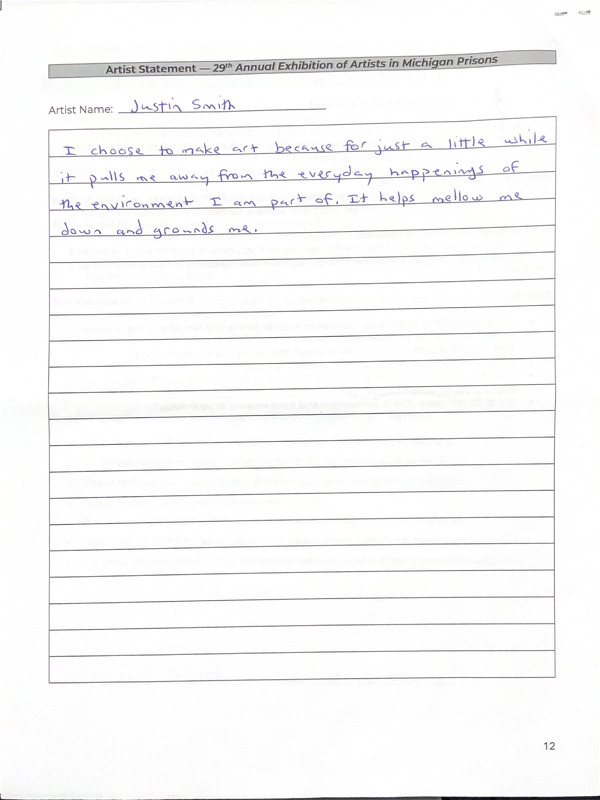 Artist Statement — 29th Annual Exhibition of Artists in Michigan Prisons
Artist Name: Justin Smith
I choose to make art because for just a little while
it pulls me away from the everyday happenings of
the environment I am part of. It helps mellow me
down and grounds me.
12